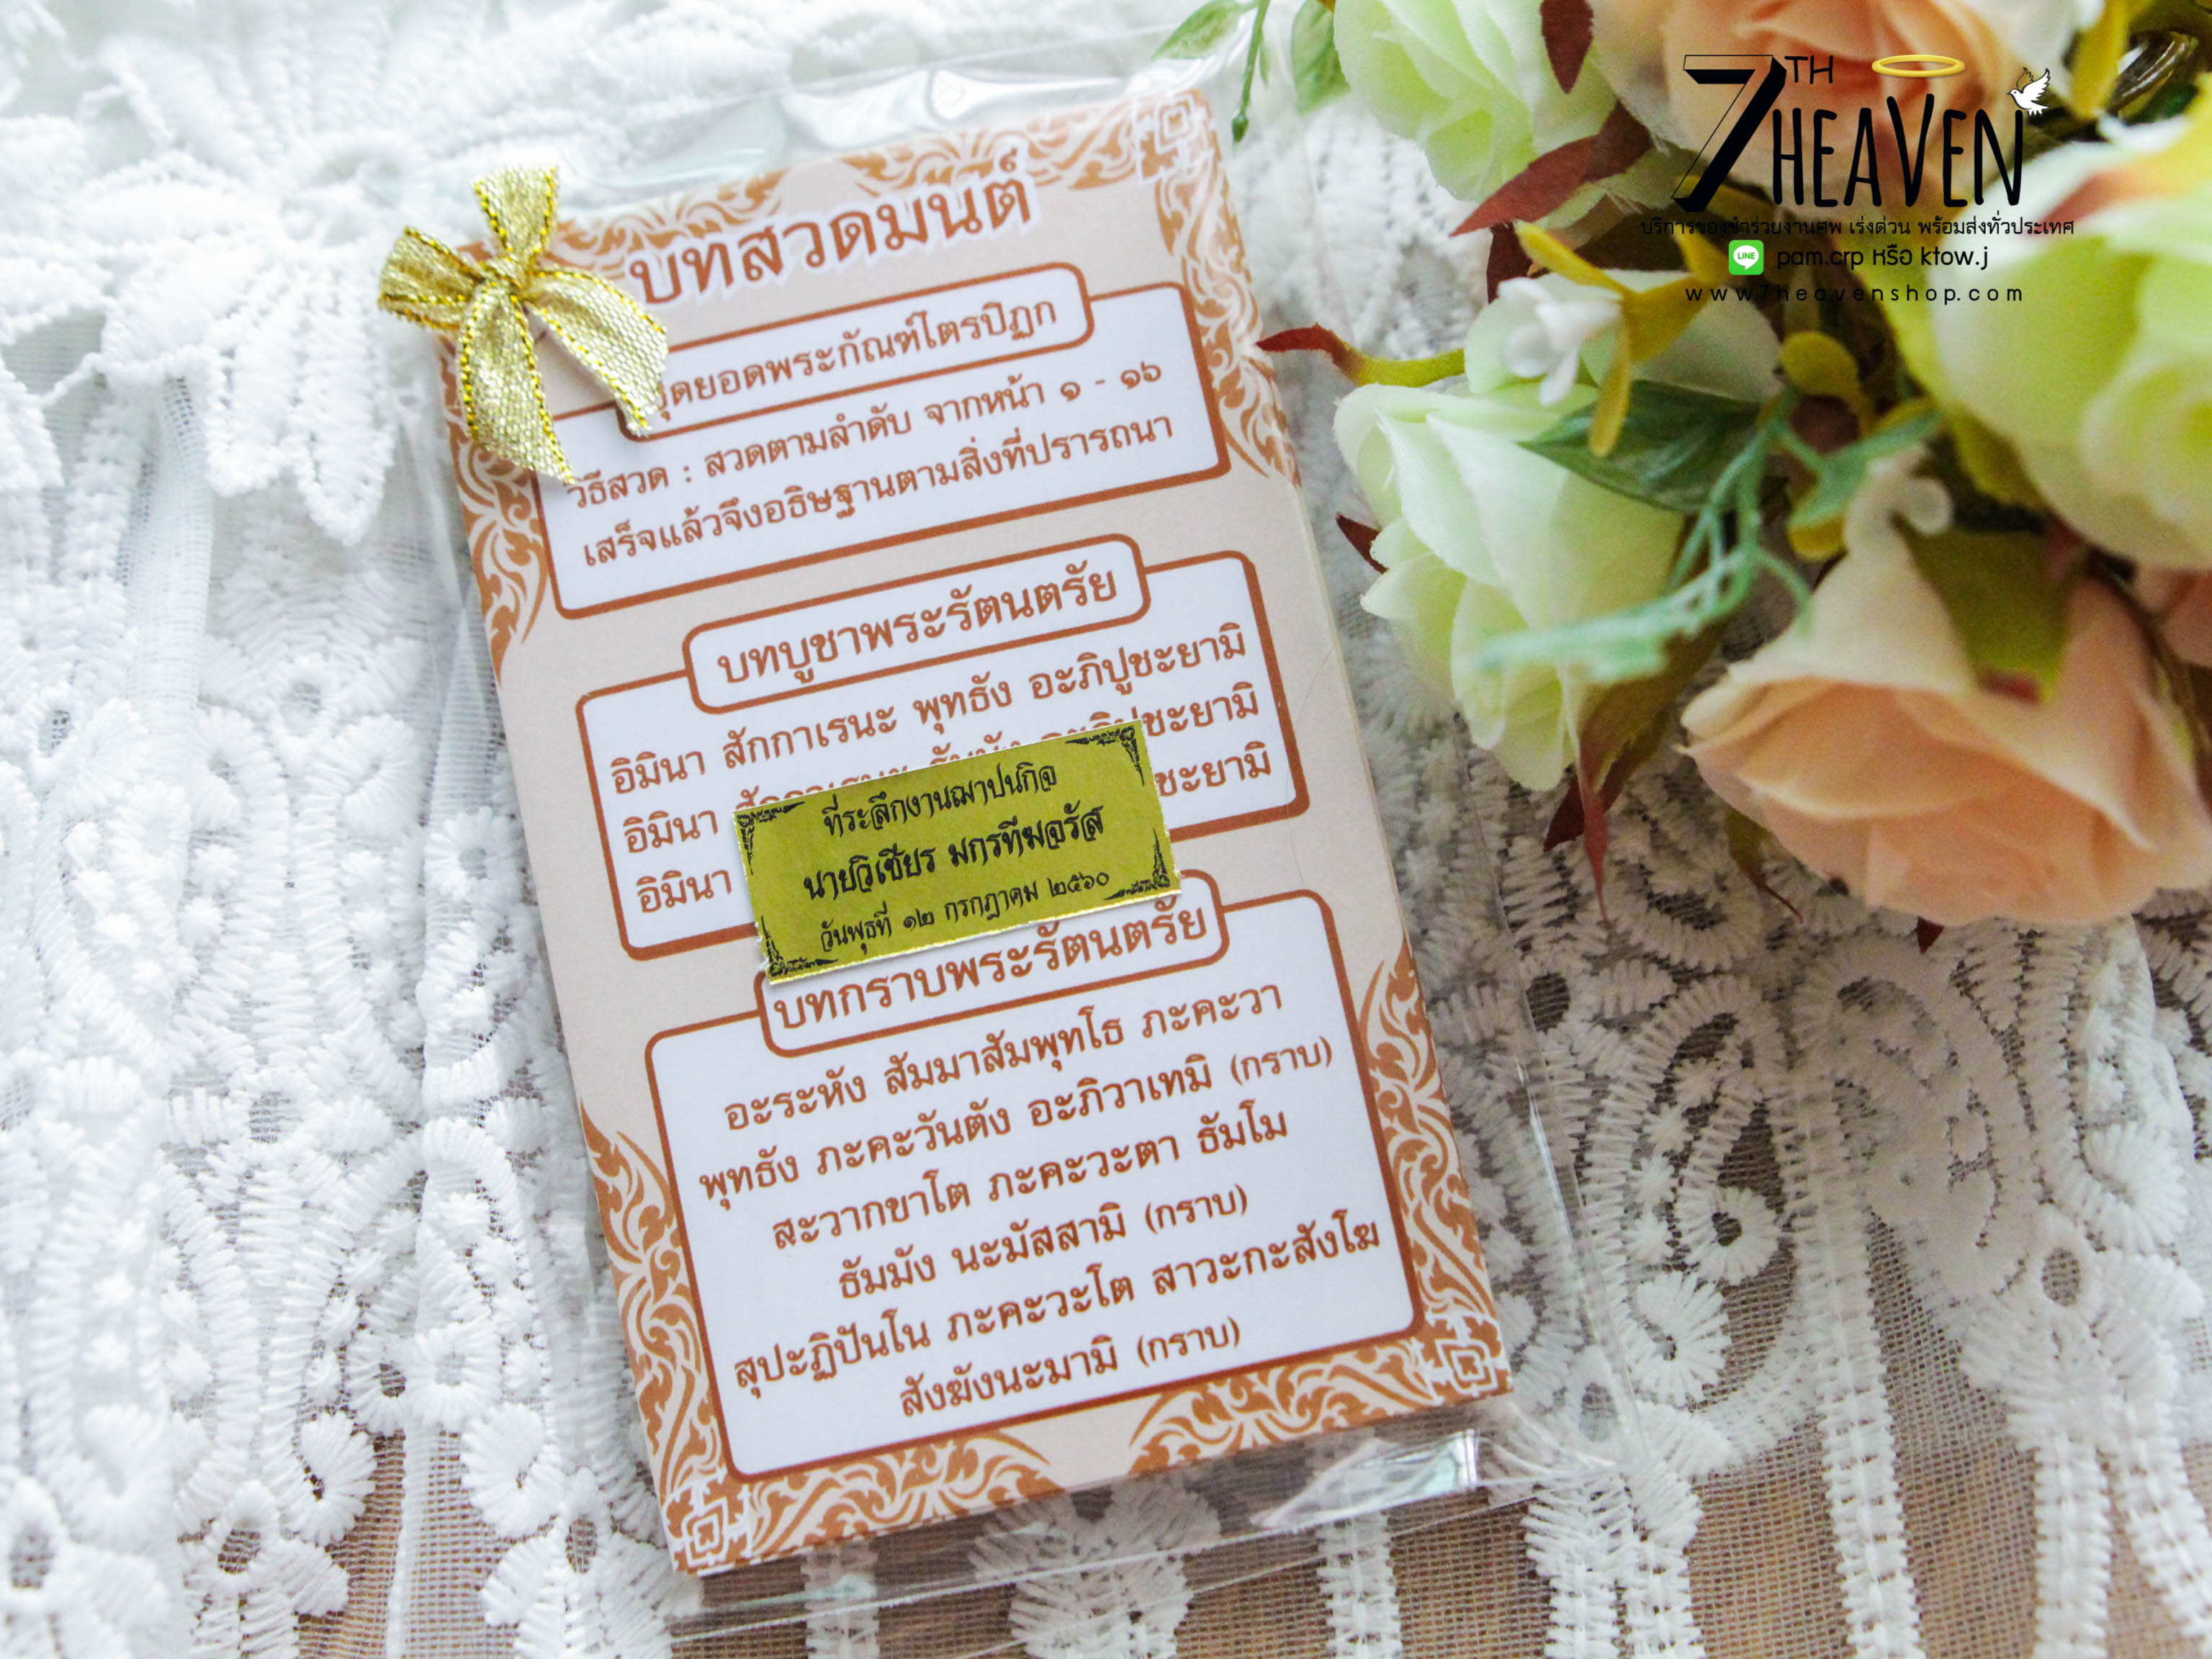 7TH HEAVEN
บริการของชำร่วยงานศพ เร่งด่วน พร้อมส่งทั่วประเทศ
LINE pam.crp หรือ ktow.j
www.7heavenshop.com
บทสวดมนต์
ยอดพระกัณฑ์ไตรปิฏก
วิธีสวด : สวดตามลำดับ จากหน้า ๑ - ๑๖
เสร็จแล้วจึงอธิษฐานตามสิ่งที่ปรารถนา
บทบูชาพระรัตนตรัย
อิมินา สักกาเรนะ พุทธัง อะภิปูชะยามิ
อิมินา
อิมินา
ที่ระลึกงานฌาปนกิจ
นายวิเชียร มกรทีฆอรัส
วันพุธที่ ๑๒ กรกฎาคม ๒๕๖๐
บทกราบพระรัตนตรัย
อะระหัง สัมมาสัมพุทโธ ภะคะวา
พุทธัง ภะคะวันตัง อะภิวาเทมิ (กราบ)
สะวากขาโต ภะคะวะตา ธัมโม
ธัมมัง นะมัสสามิ (กราบ)
สุปะฏิปันโน ภะคะวะโต สาวะกะสังโฆ
สังฆังนะมามิ (กราบ)